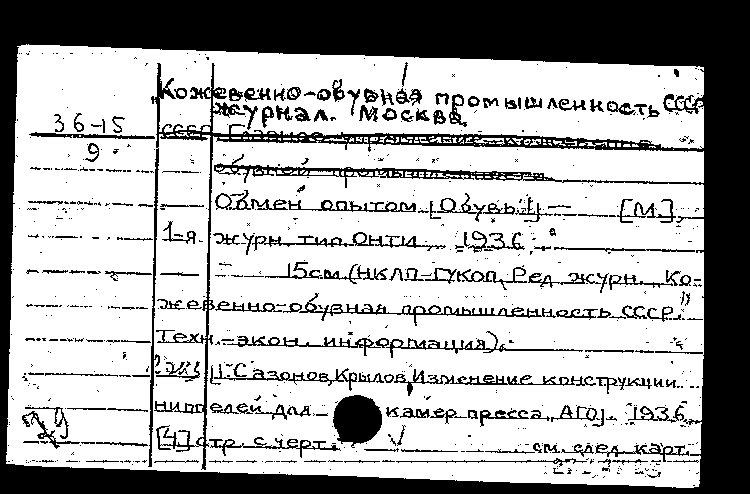 „Кожевенно-обувная промышленность СССР
журнал. Москва.
36-15
9
СССР Главное управление кожевенно-
обувной промышленности
Обмен опытом [Обувь.] — [М.],
1-я журн. тип. ОНТИ, 1936.
15см. (НКЛП-ГУКОП, Ред. журн. „Ко-
жевенно-обувная промышленность СССР."
Техн.-экон. информация).
1. Сазонов, Крылов, Изменение конструкции
ниппелей для камер пресса „АГО". 1936.
[4] стр. с черт.
см. след. карт.